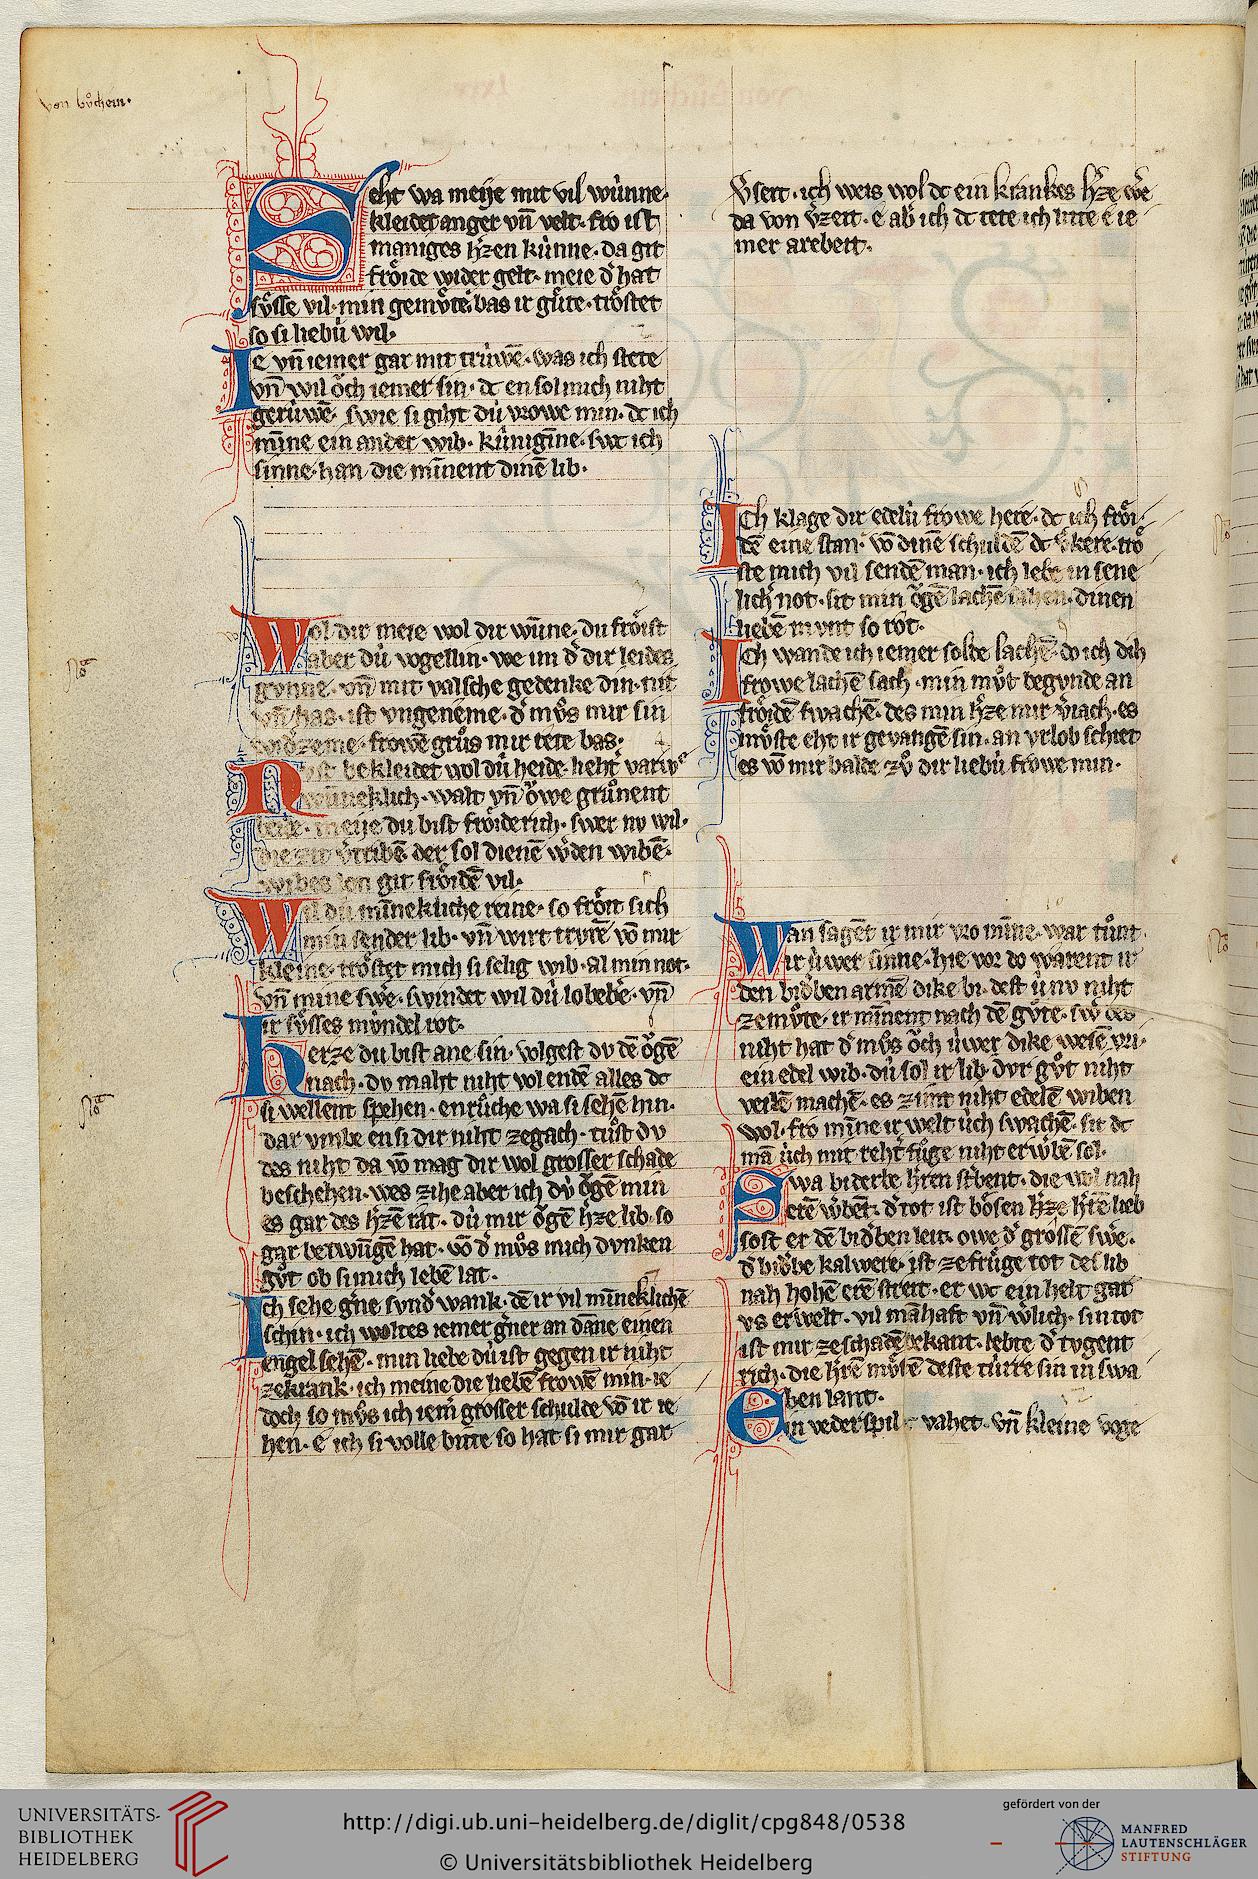 von bůchein.
Seht wa meije mit vil wúnne·
kleidet anger vn̄ velt· fro ist
maniges h̓zen kúnne· da git
frỏide wider gelt· meie d̓ hat
sůsse vil· min gemůte bas ir gůte· trỏstet
so si liebú wil·
Ie vn̄ iemer gar mit trúwē· was ich stete
vn̄ wil ỏch iemer sin· dc en sol mich niht
gerúwē· swie si giht dú vrowe min· dc ich
mīne ein ander wib· kúnigīne· swc ich
sinne· han die mīnent dinē lib·
Wol dir meie wol dir wūne· du frỏist
aber dú vogellin· we im d̓ dir leides
gvnne· vn̄ mit valsche gedenke din· nit
vn̄ has· ist vngeneme· d̓ můs mir sin
wid̓zeme· frowē grůs mir tete bas·
Nv ist bekleidet wol dú heide· lieht varwe
wūneklich· walt vn̄ ỏwe grůnent
beide· meije du bist frỏiderich· swer nv wil·
die zit v̓tribē der sol dienē w̓den wibē·
wibes lon git frỏidē vil·
Wil dú mīnekliche reine· so frỏit sich
min sender lib· vn̄ wirt trvrē vō mir
kleine· trỏstet mich si selig wib· al min not·
vn̄ mine sw̓e· swindet wil dú lobebe̓· vn̄
ir sůsses mv́ndel rot·
herze du bist ane sin· volgest dv dē ỏgē
nach· dv maht niht vol endē alles dc
si wellent spehen· enrůche wa si sehē hin·
dar vmbe en si dir niht ze gach· tůst dv
des niht da vō mag dir wol grosser schade
beschehen· wes zihe aber ich dv́ ỏgē min
es gar des h̓zē rat· dú mir ỏgē h̓ze lib· so
gar betwūgē hat· vō d̓ můs mich dvnken
gůt ob si mich lebē lat·
Ich sehe g̓ne svnd̓ wank· dē ir vil mīneklichē
schin· ich woltes iemer g̓ner an dāne einen
engel sehē· min liebe dú ist gegen ir niht
ze krank· ich meine die liebē frowē min· ie
doch so můs ich iem̓ grosser schulde vō ir ie
hen· e ich si volle bitte so hat si mir gar
v̓seit· ich weis wol dc ein krankes h̓ze w̓e
da von v̓zeit· e ab̓ ich dc tete ich litte e ie
mer arebeit·
Ich klage dir edelú frowe here· dc ich frỏi
dē eine stan· vō dinē schuldē dc v̓kere· trỏ
ste mich vil sendē man· ich lebe in sene
lich̓ not· sit min ỏgē lachē sahen· dinen
liebē mvnt so rot·
Ich wande ich iemer solde lachē· do ich dih
frowe lachē sach· min můt begvnde an
frỏidē swachē· des min h̓ze mir v̓iach· es
můste eht ir gevangē sin· an vrlob schiet
es vō mir balde zů dir liebú frowe min·
Wan sagēt ir mir vro mīne· war tůnt
ir úwer sinne· hie vor do warent ir
den bid̓ben armē dike bi· dest ú nv niht
ze můte· ir mīnent nach dē gůte· sw̓ des
niht hat d̓ můs ỏch úwer dike wesē vri·
ein edel wib· dú sol ir lib dvr gůt niht
veilē machē· es zimt niht edelē wiben
wol· fro mīne ir welt úch swachē· sit dc
mā úch mit reht̓ fůge niht erw̓bē sol·
Swa biderbe h̓ren st̓bent· die wol nah
erē w̓bēt· d̓ tot ist bỏsen h̓zē h̓tē lieb
sost er dē bid̓ben leit· owe d̓ grossē sw̓e·
d̓ bid̓be kalwere· ist ze frůge tot des lib
nah hohē erē streit· er wc ein helt gar
vs erwelt· vil māhaft vn̄ w̓lich· sin tot
ist mir ze schadē bekant· lebte d̓ tvgent
rich· die h̓rē můsē deste túrre sin in swa
ben lant·
Ein vederspil vahet· vn̄ kleine voge
UNIVERSITÄTS-
BIBLIOTHEK
HEIDELBERG
http://digi.ub.uni-heidelberg.de/diglit/cpg848/0538
© Universitätsbibliothek Heidelberg
gefördert von der
MANFRED
LAUTENSCHLÄGER
STIFTUNG